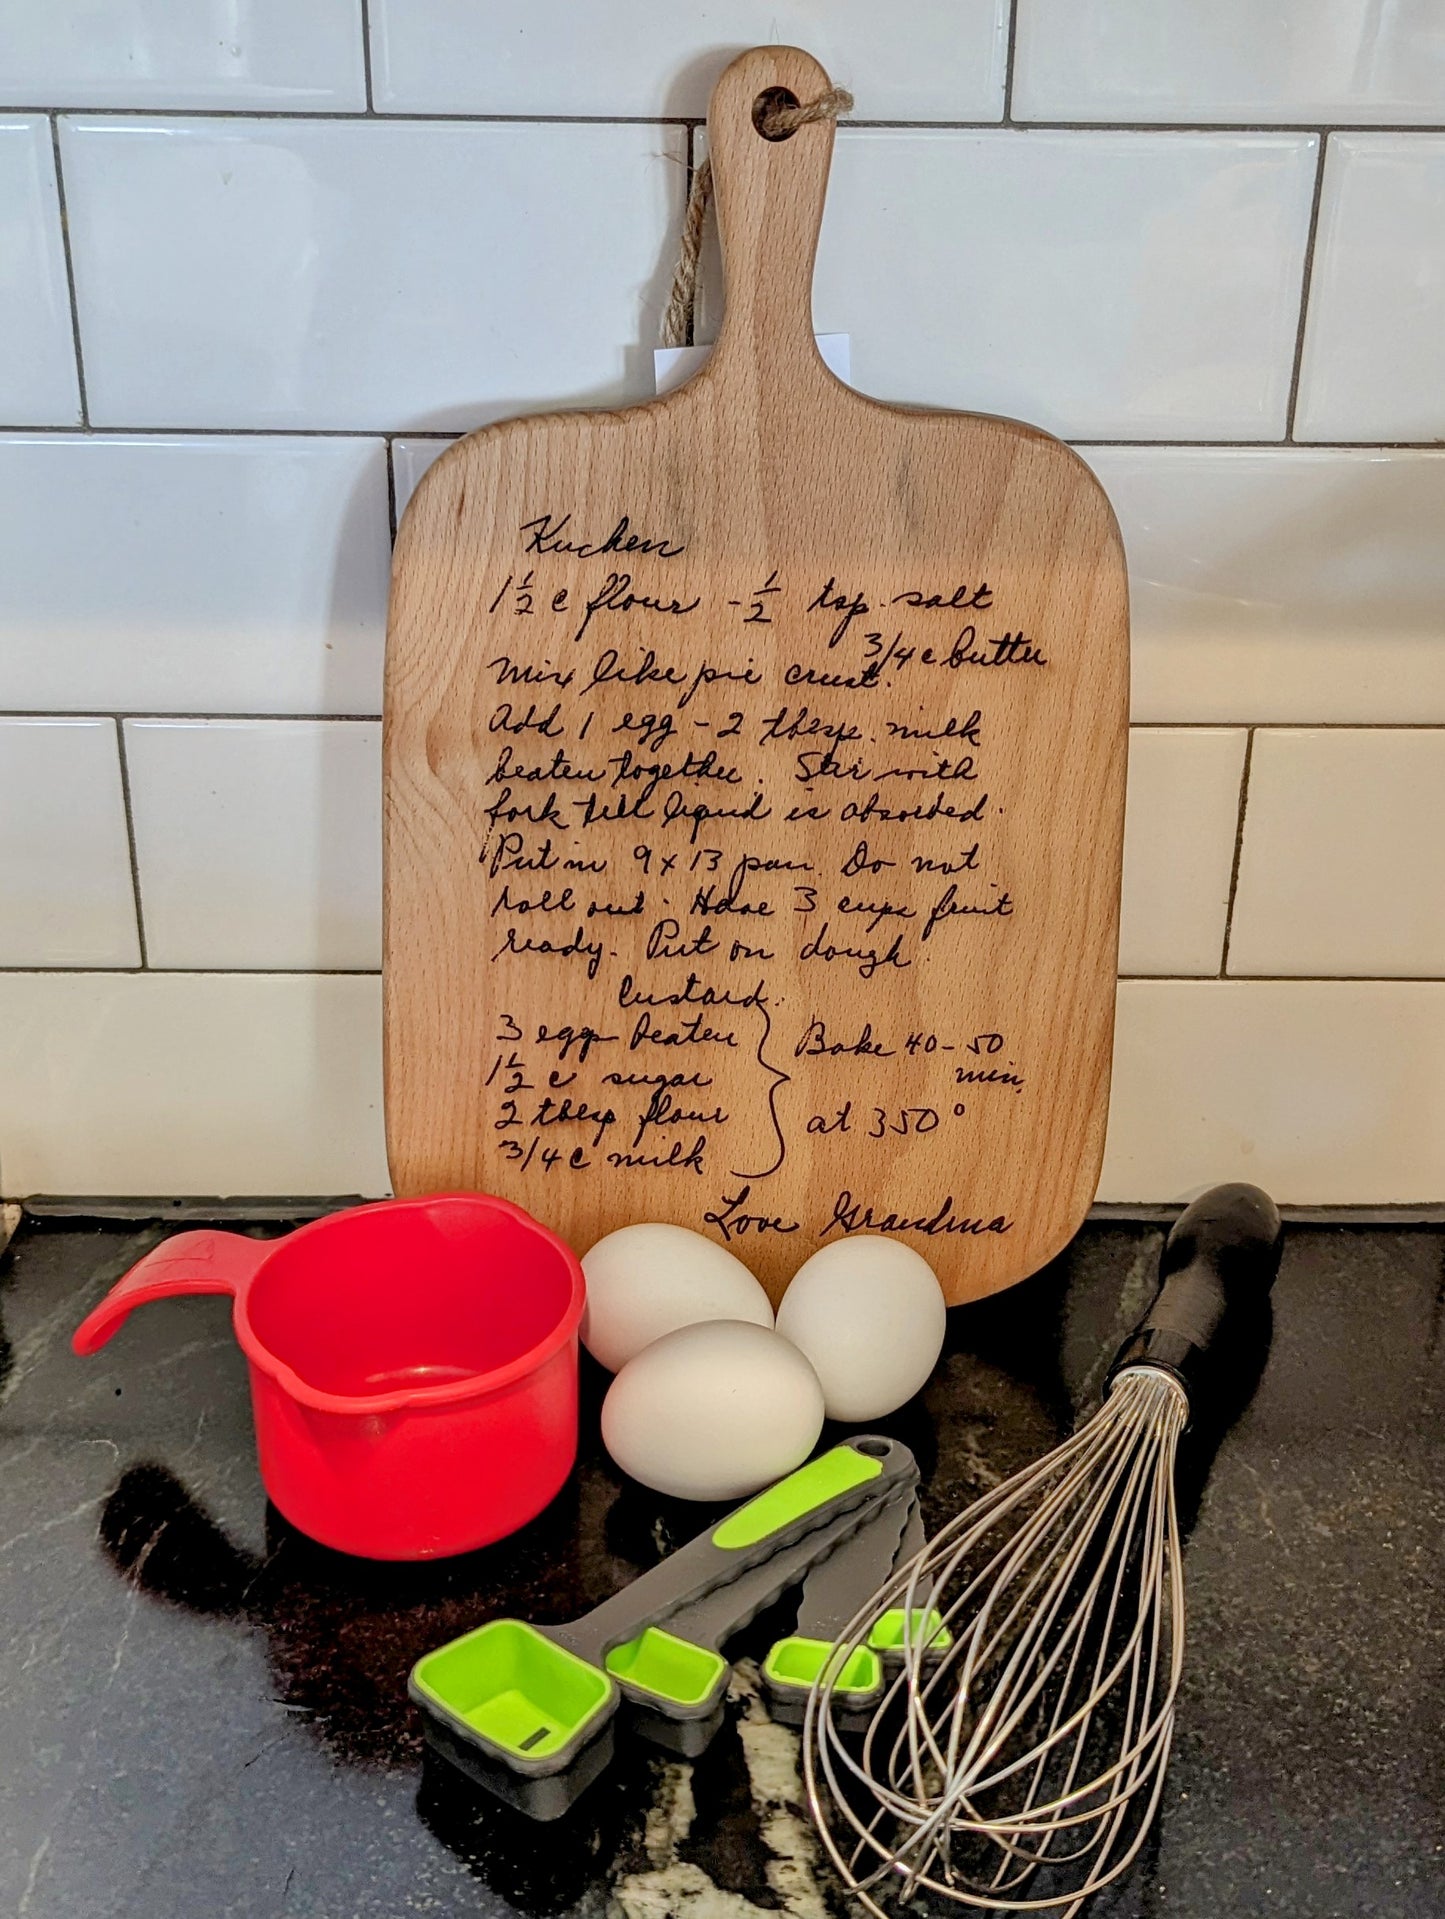 Kuchen
1 1/2 c flour - 1/2 tsp. salt
3/4 c butter
Mix like pie crust.
Add 1 egg - 2 tbesp. milk
beaten together. Stir with
fork till liquid is absorbed.
Put in 9 x 13 pan. Do not
roll out. Have 3 cups fruit
ready. Put on dough.
Custard.
3 eggs beaten
1 1/2 c sugar
2 tbesp flour
3/4 c milk
Bake 40-50
min.
at 350°
Love Grandma